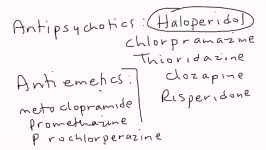 Antipsychotics: Haloperidol
Chlorpramazine
Thioridazine
Clozapine
Risperidone
Antiemetics:
metoclopramide
Promethazine
Prochlorperazine